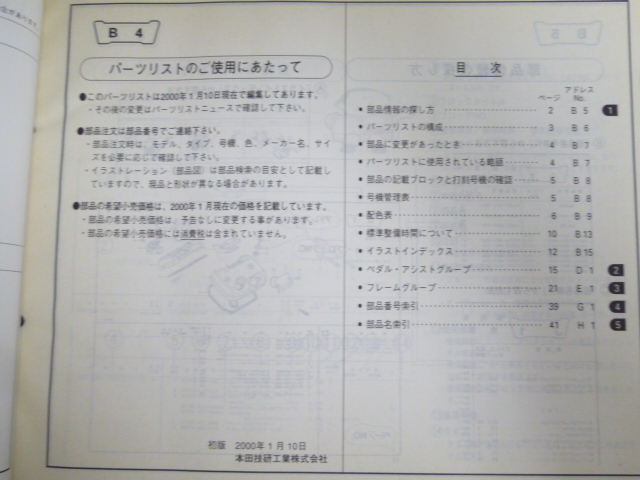 B 4
パーツリストのご使用にあたって
●このパーツリストは2000年1月10日現在で編集してあります。
・その後の変更はパーツリストニュースで確認して下さい。
●部品注文は部品番号でご連絡下さい。
・部品注文時は、モデル、タイプ、号機、色、メーカー名、サイ
ズを必要に応じて確認して下さい。
・イラストレーション（部品図）は部品検索の目安として記載し
ていますので、現品と形状が異なる場合があります。
●部品の希望小売価格は、2000年1月現在の価格を記載しています。
・部品の希望小売価格は、予告なしに変更する事があります。
・部品の希望小売価格には消費税は含まれていません。
初版 2000年1月10日
本田技研工業株式会社
目 次
ページ アドレス No.
• 部品情報の探し方 2 B 5 1
• パーツリストの構成 3 B 6
• 部品に変更があったとき 4 B 7
• パーツリストに使用されている略語 4 B 7
• 部品の記載ブロックと打刻号機の確認 5 B 8
• 号機管理表 5 B 8
• 配色表 6 B 9
• 標準整備時間について 10 B.13
• イラストインデックス 12 B 15
• ペダル・アシストグループ 15 D 1 2
• フレームグループ 21 E 1 3
• 部品番号索引 39 G 1 4
• 部品名索引 41 H 1 5